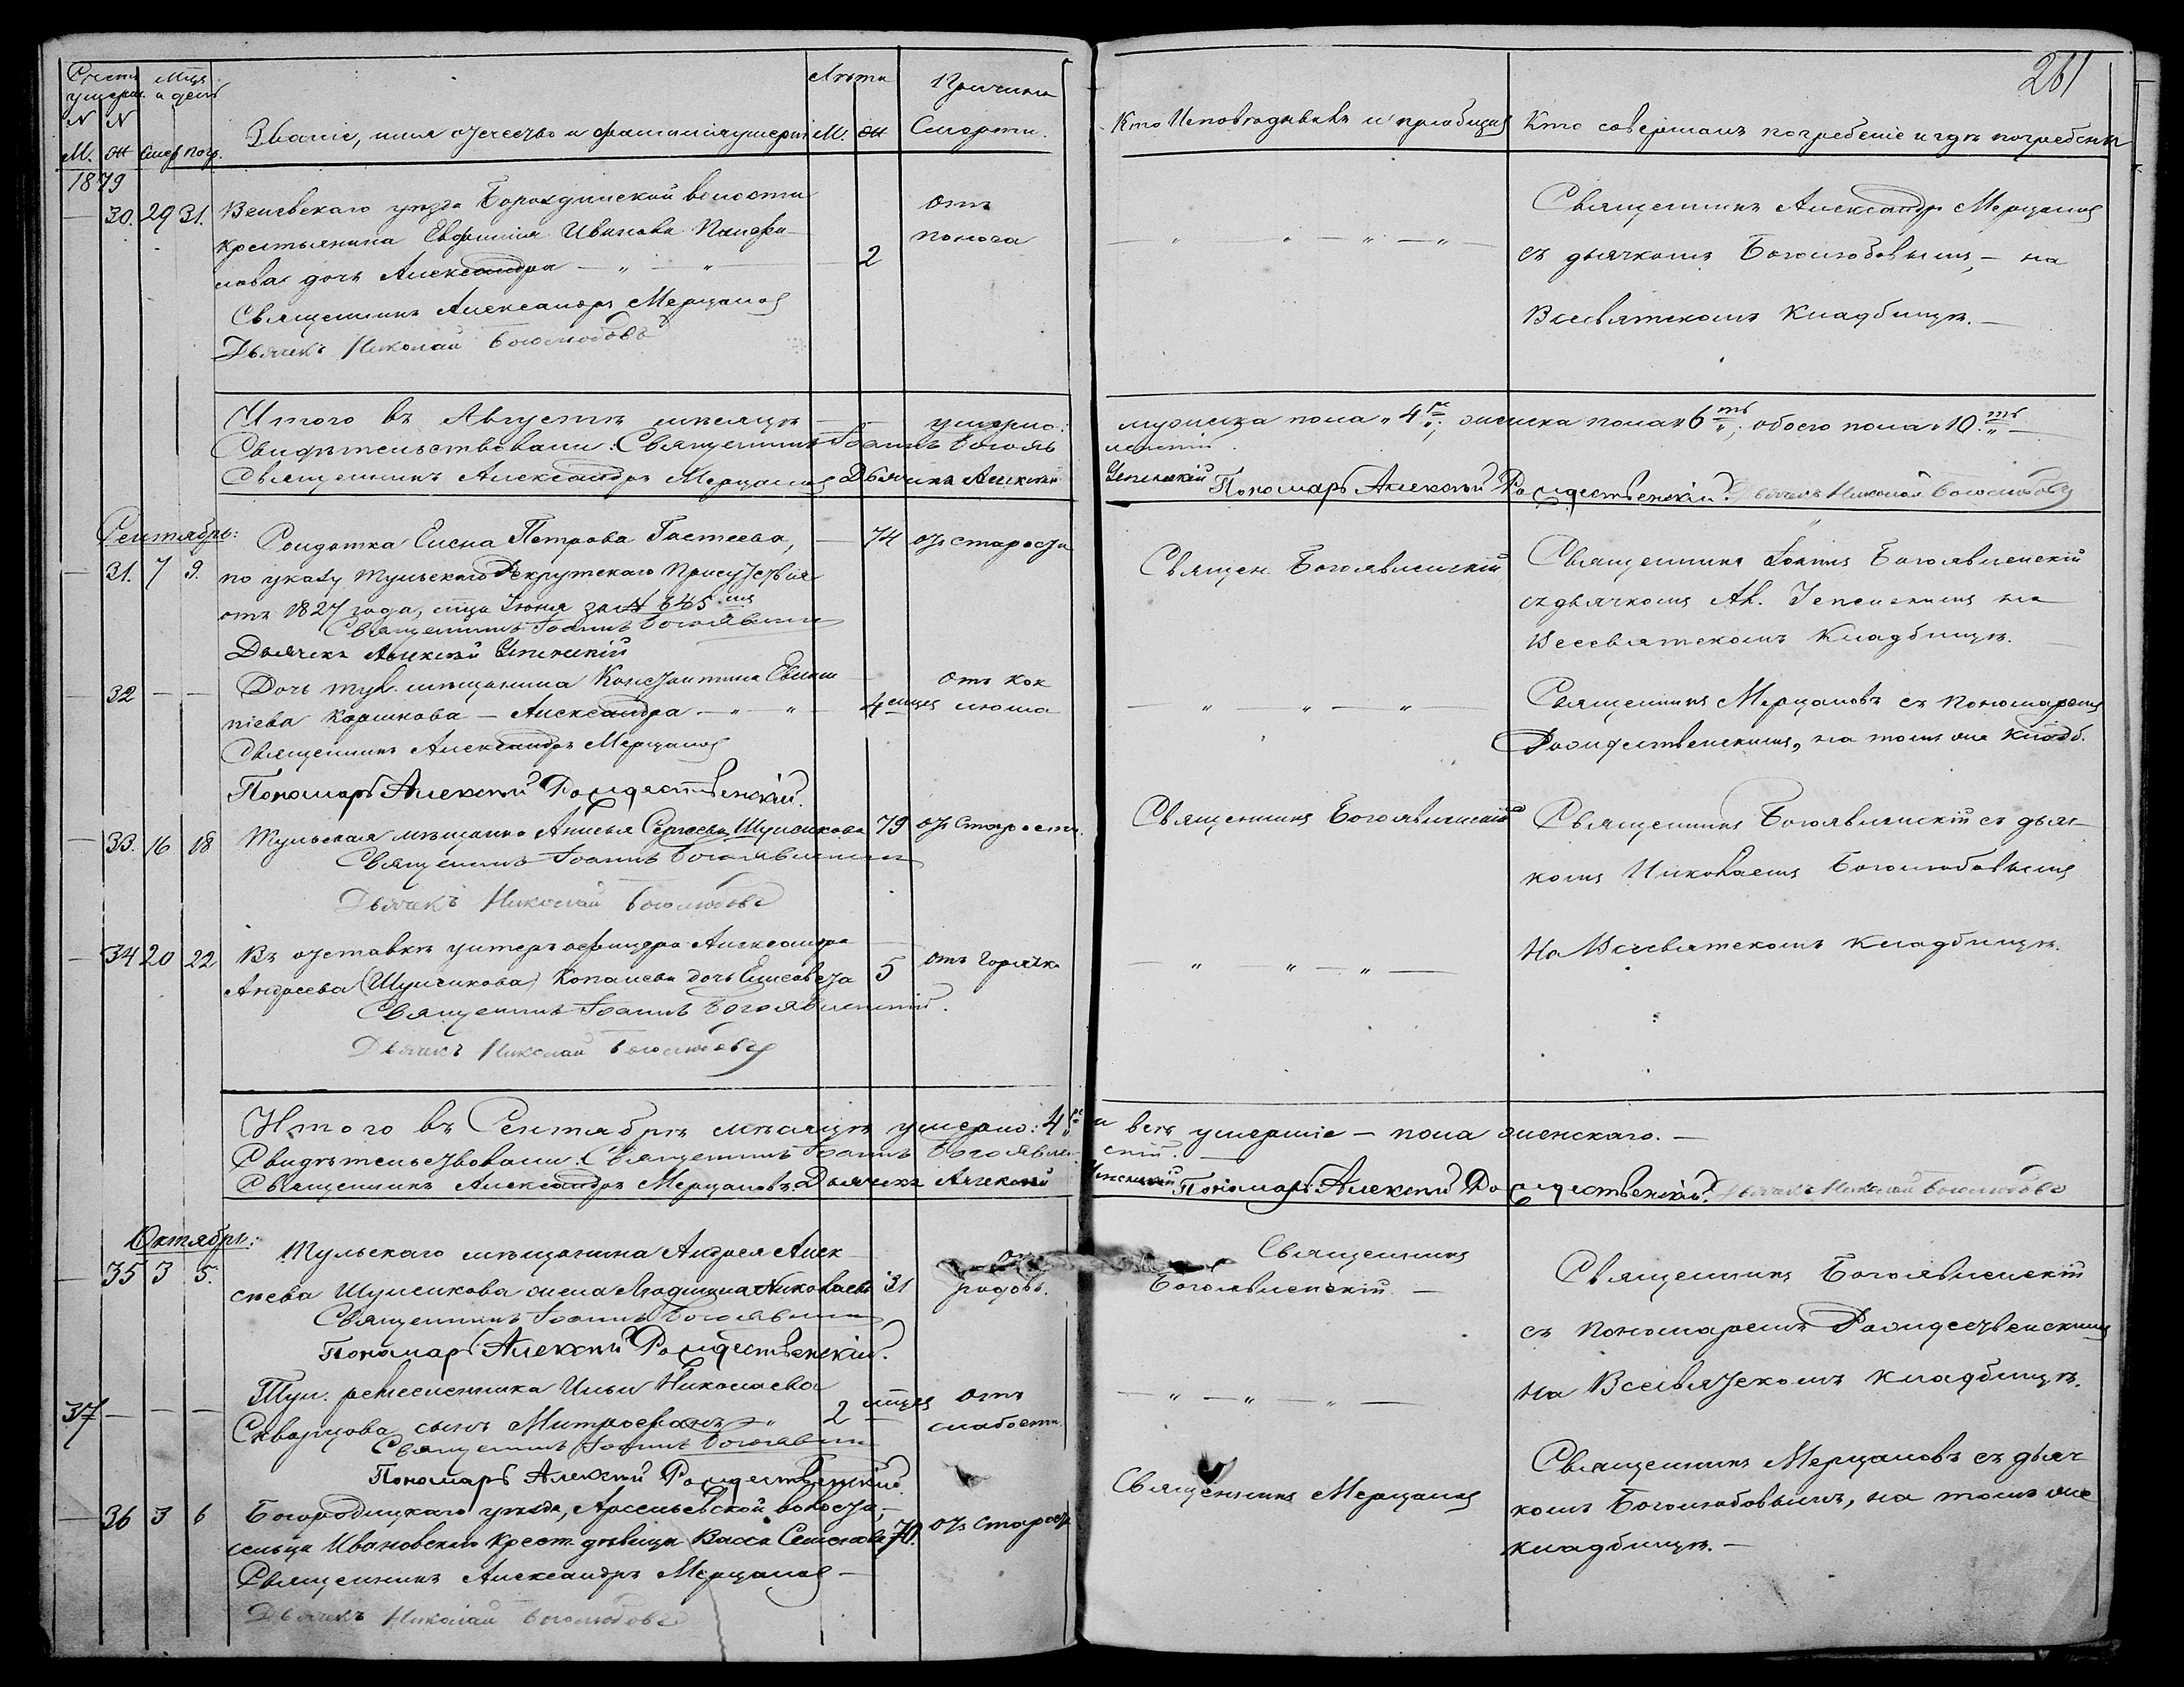 261
Счетъ умерш. Мѣц. и день Лѣта Причина
N N Званіе, имя отечество и фамилія умерш. М. Ж Смерти. Кто Исповѣдывалъ и пріобщалъ Кто совершалъ погребеніе и гдѣ погребены
М. Ж Смер пог.
1879
— 30. 29 31. Веневскаго уѣзда Бороздинской волости
крестьянина Евфимія Иванова
дочь Александра — „ — „ — 2 отъ поноса
— „ — „ — „ — „ —
Священникъ Александръ Мерцаловъ
съ дьячкомъ Боголюбовымъ, — на
Всесвятскомъ Кладбищѣ. —
Священникъ Александръ Мерцаловъ
Дьячекъ Николай Боголюбовъ
Итого въ Августѣ мѣсяцѣ — умерло: мужеска пола „ 4ре; женска пола „ 6ть; обоего пола „ 10ть —
Свидѣтельствовали: Священникъ Іоаннъ Богоявленскій.
Священникъ Александръ Мерцаловъ Дьячекъ Алексѣй Успенскій Пономарь Алексѣй Рождественскій. Дьячекъ Николай Боголюбовъ
Сентябрь:
— 31. 7 9. Солдатка Елена Петрова — 74 отъ старости
по указу Тульскаго Рекрутскаго Присутствія
отъ 1827 года, мца Іюня за № 645мъ
Священ. Богоявленскій
Священникъ Іоаннъ Богоявленскій
съ дьячкомъ Ал. Успенскимъ на
Всесвятскомъ Кладбищѣ.
Священникъ Іоаннъ Богоявлен
Дьячекъ Алексѣй Успенскій
— 32 — — Дочь тул. мѣщанина Константина
Александра — „ — „ — 4 мцевъ отъ коклюша
— „ — „ — „ —
Священникъ Мерцаловъ съ пономаремъ
Рождественскимъ, на томъ же кладб.
Священникъ Александръ Мерцаловъ
Пономарь Алексѣй Рождественскій.
— 33. 16 18 Тульская мѣщанка Анисья Сергеева Шуликова 79 отъ старости.
Священникъ Богоявленскій
Священникъ Богоявленскій съ дьячкомъ Николаемъ Боголюбовымъ
Священникъ Іоаннъ Богоявленскій
Дьячекъ Николай Боголюбовъ
На Всесвятскомъ кладбищѣ.
— 34 20 22 Въ отставкѣ унтеръ офицера Александра
Андреева (Шуликова) Копалева дочь Елисавета 5 отъ горячки
— „ „ — „ —
Священникъ Іоаннъ Богоявленскій.
Дьячекъ Николай Боголюбовъ
Итого въ Сентябрѣ мѣсяцѣ умерло: 4ре и всѣ умершіе — пола женскаго. —
Свидѣтельствовали: Священникъ Іоаннъ Богоявленскій.
Священникъ Александръ Мерцаловъ. Дьячекъ Алексѣй Успенскій Пономарь Алексѣй Рождественскій. Дьячекъ Николай Боголюбовъ
Октябрь:
— 35 3 5. Тульскаго мѣщанина Андрея Алексѣева Шуликова жена Людмила Николаева 31 родовъ.
Священникъ
Богоявленскій. —
Священникъ Богоявленскій
съ пономаремъ Рождественскимъ
на Всесвятскомъ кладбищѣ.
Священникъ Іоаннъ Богоявлен
Пономарь Алексѣй Рождественскій.
37 — — — Тул. ремесленника Ильи Николаева
Скворцова сынъ Митрофанъ — „ 2 мцевъ отъ слабости.
— „ — „ — „ —
Священникъ Іоаннъ Богоявлен
Пономарь Алексѣй Рождественскій.
— 36 3 6 Богородицкаго уѣзда, Арсеньевской волости,
сельца Ивановскаго крест. дѣвица Васса Семенова 70. отъ старости
Священникъ Мерцаловъ
Священникъ Мерцаловъ съ дьячкомъ Боголюбовымъ, на томъ же
кладбищѣ. —
Священникъ Александръ Мерцаловъ —
Дьячекъ Николай Боголюбовъ